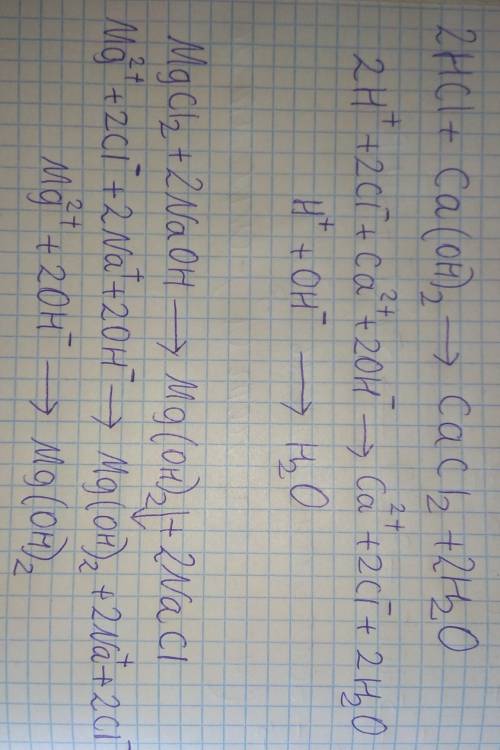 2HCl + Ca(OH)₂ → CaCl₂ + 2H₂O
2H⁺ + 2Cl⁻ + Ca²⁺ + 2OH⁻ → Ca²⁺ + 2Cl⁻ + 2H₂O
H⁺ + OH⁻ → H₂O
MgCl₂ + 2NaOH → Mg(OH)₂↓ + 2NaCl
Mg²⁺ + 2Cl⁻ + 2Na⁺ + 2OH⁻ → Mg(OH)₂ + 2Na⁺ + 2Cl⁻
Mg²⁺ + 2OH⁻ → Mg(OH)₂